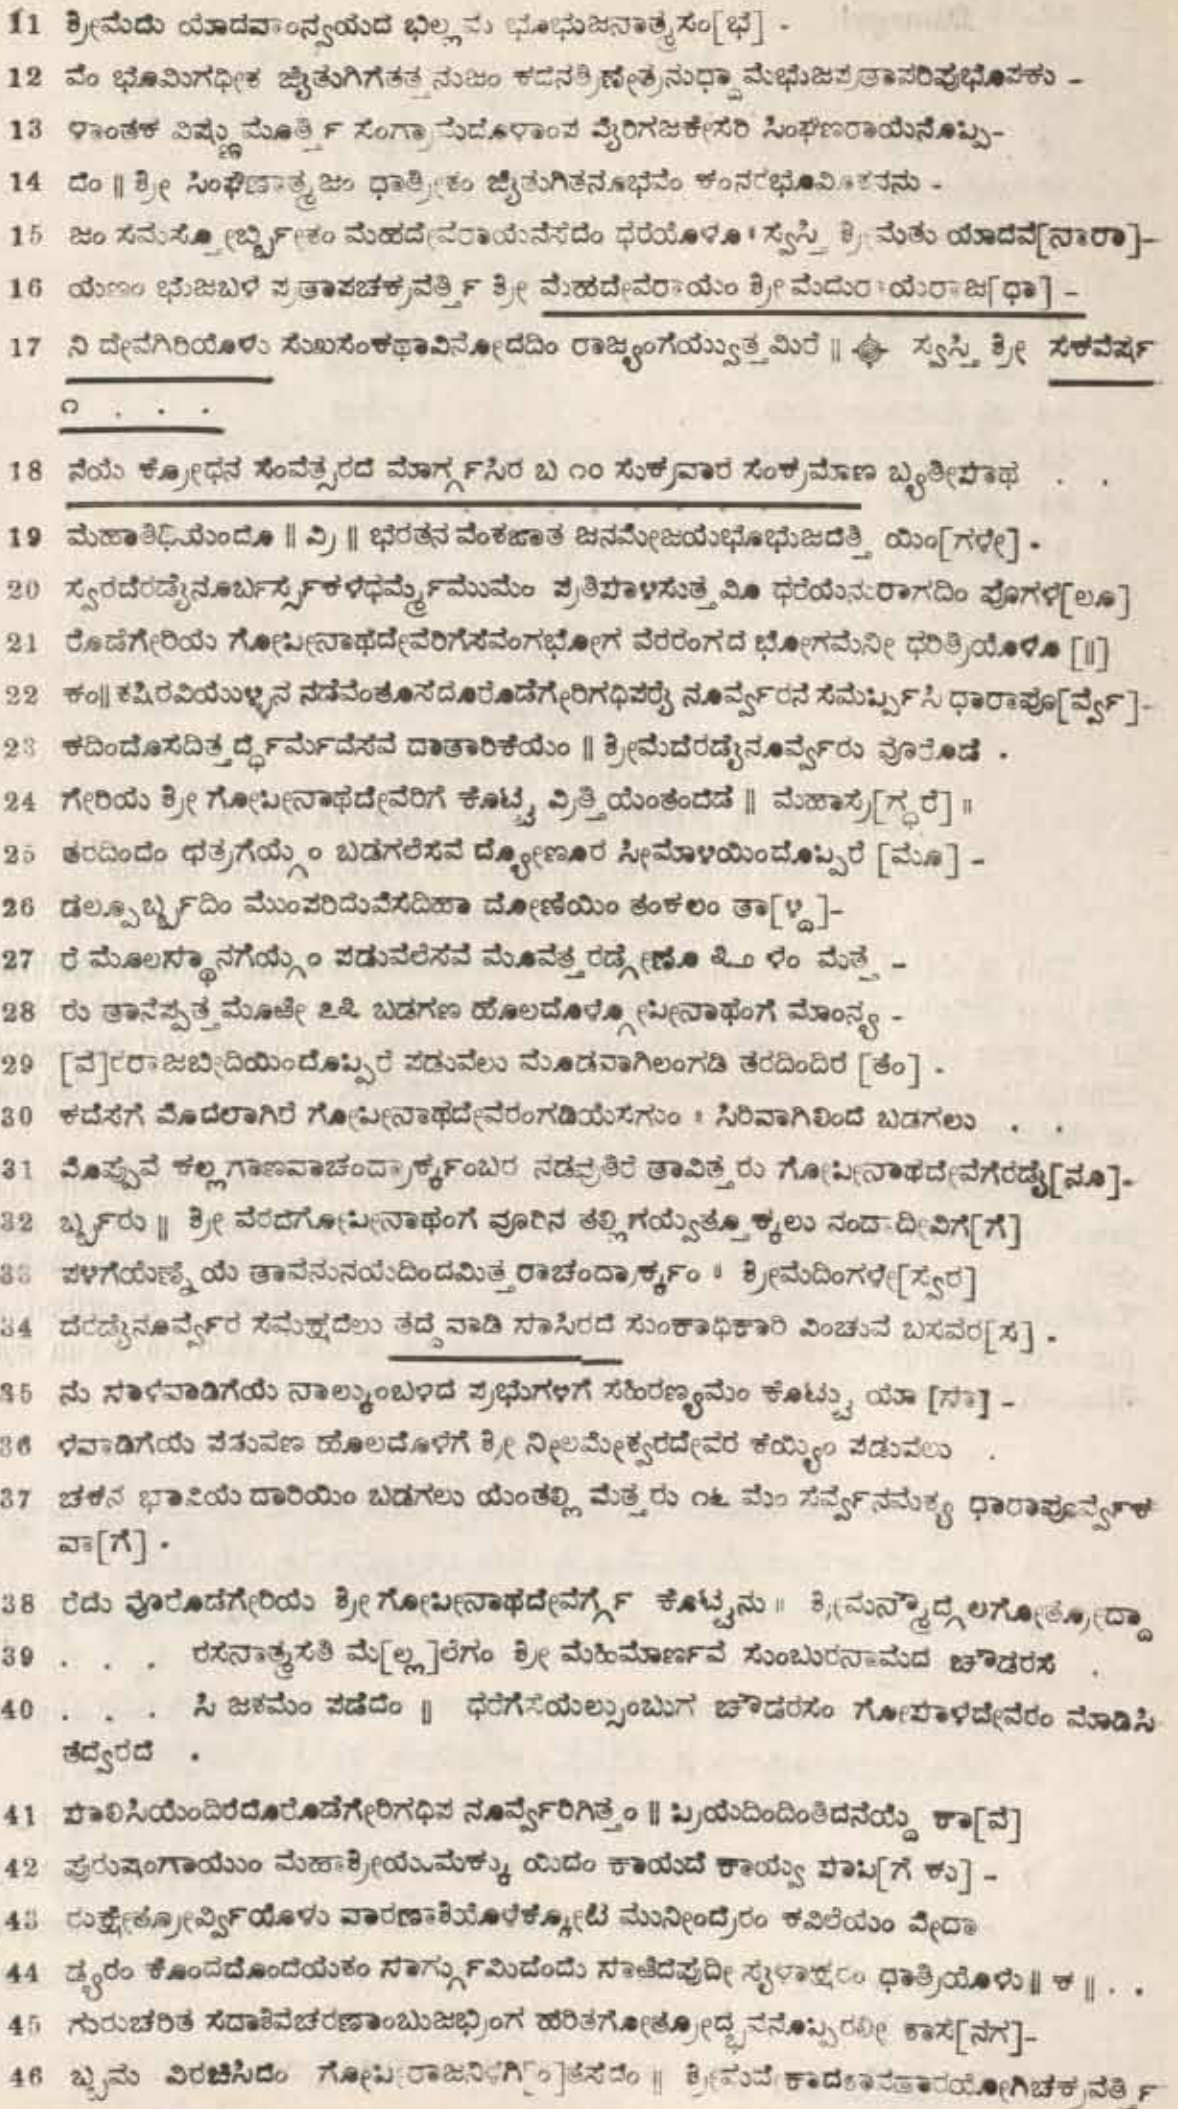 11 ಶ್ರೀಮದು ಯಾದವಾಂನ್ವಯದ ಭಿಲ್ಲಮ ಭೂಭುಜನಾತ್ಮಸಂ[ಭ] -
12 ವಂ ಭೂಮಿಗಧೀಕ ಜೈತುಗಿಗೆತತ್ತನುಜಂ ಕದನತ್ರಿಣೇತ್ರನುದ್ಧಾಮಭುಜಪ್ರತಾಪರಿಪುಭೂಪಕು -
13 ಳಾಂತಕ ವಿಷ್ಣುಮೂರ್ತ್ತಿ ಸಂಗ್ರಾಮದೊಳಾಂಪ ವೈರಿಗಜಕೇಸರಿ ಸಿಂಘಣರಾಯನೊಪ್ಪಿ-
14 ದಂ || ಶ್ರೀ ಸಿಂಘಣಾತ್ಮಜಂ ಧಾತ್ರೀಕಂ ಜೈತುಗಿತನೂಭವಂ ಕಂನರಭೂವಿಕತನು -
15 ಜಂ ಸಮಸ್ತೋರ್ಬ್ಬೀಕಂ ಮಹದೇವರಾಯನೆಸದಂ ಧರೆಯೊಳೂ। ಸ್ವಸ್ತಿ ಶ್ರೀಮತು ಯಾದವ[ನಾರಾ]-
16 ಯಣಂ ಭುಜಬಳ ಪ್ರತಾಪಚಕ್ರವರ್ತ್ತಿ ಶ್ರೀ ಮಹದೇವರಾಯಂ ಶ್ರೀಮದುರಾಯರಾಜ[ಧಾ] -
17 ನಿ ದೇವಗಿರಿಯೊಳು ಸುಖಸಂಕಥಾವಿನೋದದಿಂ ರಾಜ್ಯಂಗೆಯ್ವುತ್ತಮಿರೆ || ಸ್ವಸ್ತಿ ಶ್ರೀ ಸಕವರ್ಷ
೧ . . .
18 ನೆಯ ಕ್ರೋಧನ ಸಂವತ್ಸರದ ಮಾರ್ಗ್ಗಸಿರ ಬ ೧೦ ಸುಕ್ರವಾರ ಸಂಕ್ರಮಾಣ ಬ್ಯತೀಪಾಥ . .
19 ಮಹಾತಿಥಿಯಂದೂ || ವ್ರಿ || ಭರತನ ವಂಕಜಾತ ಜನಮೇಜಯಭೂಭುಜದತ್ತಿ ಯಿಂ[ಗಳೇ] -
20 ಸ್ವರದೆರಡೈನೂರ್ಬರ್ಸ್ಸಕಳಧರ್ಮ್ಮಮುಮಂ ಪ್ರತಿಪಾಳಸುತ್ತಮಿ ಧರೆಯನುರಾಗದಿಂ ಪೊಗಳ[ಲೂ]
21 ರೊಡೆಗೇರಿಯ ಗೋಪೀನಾಥದೇವರಿಗೆಸವಂಗಭೋಗ ವರರಂಗದ ಭೋಗಮನೀ ಧರಿತ್ರಿಯೊಳೂ [||]
22 ಕಂ|| ಕಷಿರವಿಯುಳ್ಳನ ನಡೆವಂತೂಸದೂರೊಡೆಗೇರಿಗಧಿಪರೈ ನೂರ್ವ್ವರನೆ ಸಮರ್ಪ್ಪಿಸಿ ಧಾರಾಪೂ[ರ್ವ್ವ]-
23 ಕದಿಂದೊಸದಿತ್ತರ್ದ್ಧರ್ಮದೆಸವ ದಾತಾರಿಕೆಯಂ || ಶ್ರೀಮದೆರಡೈನೂರ್ವ್ವರು ವೂರೊಡೆ .
24 ಗೇರಿಯ ಶ್ರೀ ಗೋಪೀನಾಥದೇವರಿಗೆ ಕೊಟ್ಟ ವ್ರಿತ್ತಿಯೆಂತಂದಡೆ || ಮಹಾಸ್ರ[ಗ್ಧರೆ] ॥
25 ತರದಿಂದಂ ಛತ್ರಗೆಯ್ಗಂ ಬಡಗಲೆಸವ ದ್ಯೋಣೂರ ಸೀಮಾಳಯಿಂದೊಪ್ಪಿರೆ [ಮೂ] -
26 ಡಲ್ಪೂರ್ಬ್ಬದಿಂ ಮುಂಪರಿದುವೆಸದಿಹಾ ದೋಣಿಯಿಂ ತಂಕಲಂ ತಾ[ಳ್ದಿ]-
27 ರೆ ಮೂಲಸ್ಥಾನಗೆಯ್ಗಂ ಪಡುವಲೆಸವ ಮೂವತ್ತರಡ್ಗೇಣೂ ೩೨ ಳಂ ಮತ್ತ -
28 ರು ತಾನೆಪ್ಪತ್ತಮೂಱೀ ೭೩ ಬಡಗಣ ಹೊಲದೊಳ್ಗೋಪೀನಾಥಂಗೆ ಮಾಂನ್ಯ -
29 [ವೆ]ರರಾಜಬೀದಿಯಿಂದೊಪ್ಪಿರೆ ಪಡುವಲು ಮೂಡವಾಗಿಲಂಗಡಿ ತರದಿಂದಿರೆ [ತಂ] .
30 ಕದೆಸೆಗೆ ಮೊದಲಾಗಿರೆ ಗೋಪೀನಾಥದೇವರಂಗಡಿಯೆಸಗುಂ । ಸಿರಿವಾಗಿಲಿಂದ ಬಡಗಲು . .
31 ವೊಪ್ಪುವ ಕಲ್ಲಗಾಣವಾಚಂದ್ರಾರ್ಕ್ಕಂಬರ ನಡವುತಿರೆ ತಾವಿತ್ತರು ಗೋಪೀನಾಥದೇವಗೆರಡೈ[ನೂ]-
32 ರ್ಬ್ಬರು || ಶ್ರೀ ವರದಗೋಪೀನಾಥಂಗೆ ವೂರಿನ ತಲ್ಲಿಗಯ್ವತ್ತೂಕ್ಕಲು ನಂದಾದೀವಿಗೆ[ಗೆ]
33 ಪಳಗೆಯೆಣ್ನೆಯ ತಾವನುನಯದಿಂದಮಿತ್ತರಾಚಂದ್ರಾರ್ಕ್ಕಂ । ಶ್ರೀಮದಿಂಗಳೇ[ಸ್ವರ]
34 ದೆರಡೈನೂರ್ವ್ವರ ಸಮಕ್ಷದಲು ತದ್ದೆವಾಡಿ ಸಾಸಿರದ ಸುಂಕಾಧಿಕಾರಿ ವಿಂಚುವ ಬಸವರ[ಸ] .
35 ನು ಸಾಳವಾಡಿಗೆಯ ನಾಲ್ಕುಂಬಳಿದ ಪ್ರಭುಗಳಿಗೆ ಸಹಿರಣ್ಯಮಂ ಕೊಟ್ಟು ಯಾ [ಸಾ] -
36 ಳವಾಡಿಗೆಯ ಪಡುವಣ ಹೊಲದೊಳಗೆ ಶ್ರೀ ನೀಲಮೇಕ್ವರದೇವರ ಕಯ್ಯಿಂ ಪಡುವಲು .
37 ಚಕನ ಭಾವಿಯ ದಾರಿಯಿಂ ಬಡಗಲು ಯಂತಲ್ಲಿ ಮತ್ತರು ೧೬ ಮಂ ಸರ್ವ್ವನಮಕ್ಯ ಧಾರಾಪೂರ್ವ್ವಕ
ವಾ[ಗೆ] .
38 ರೆದು ವೂರೊಡಗೇರಿಯ ಶ್ರೀ ಗೋಪೀನಾಥದೇವರ್ಗ್ಗೆ ಕೊಟ್ಟನು ॥ ಶ್ರೀಮನ್ಮೌದ್ಗಲಗೋತ್ರೋದ್ಧಾ
39 . . . ರಸನಾತ್ಮಸತಿ ಮ[ಲ್ಲ]ಲೆಗಂ ಶ್ರೀ ಮಹಿಮಾರ್ಣವ ಸುಂಬುರನಾಮದ ಚೌಡರಸ .
40 . . . ಸಿ ಜಕಮಂ ಪಡೆದಂ || ಧರೆಗೆಸೆಯಲ್ಸುಂಬುಗ ಚೌಡರಸಂ ಗೋಪಾಳದೇವರಂ ಮಾಡಿಸಿ
ತದ್ವರದೆ .
41 ಪಾಲಿಸಿಯೆಂದಿರದೂರೊಡೆಗೇರಿಗಧಿಪ ನೂರ್ವ್ವರಿಗಿತ್ತಂ || ಪ್ರಿಯದಿಂದಿಂತಿದನೆಯ್ದೆ ಕಾ[ವ]
42 ಪುರುಷಂಗಾಯುಂ ಮಹಾಶ್ರೀಯುಮಕ್ಕು ಯಿದಂ ಕಾಯದೆ ಕಾಯ್ವ ಪಾಪಿ[ಗೆ ಕು] -
43 ರುಕ್ಷೇತ್ರೋರ್ವ್ವಿಯೊಳು ವಾರಣಾಶಿಯೊಳೆಕ್ಕೋಟಿ ಮುನೀಂದ್ರರಂ ಕವಿಲೆಯಂ ವೇದಾ
44 ಡ್ಯರಂ ಕೊಂದದೊಂದೆಯಕಂ ಸಾರ್ಗ್ಗುಮಿದೆಂದು ಸಾಱಿದಪುದೀ ಸೈಳಾಕ್ಷರಂ ಧಾತ್ರಿಯೊಳು || ಕ || . .
45 ಗುರುಚರಿತ ಸದಾಶಿವಚರಣಾಂಬುಜಭ್ರಿಂಗ ಹರಿತಗೋತ್ರೋದ್ಭವನೊಪ್ಪಿರಲೀ ಕಾಸ[ನಗ]-
46 ಬ್ಬಮ ವಿರಚಿಸಿದಂ